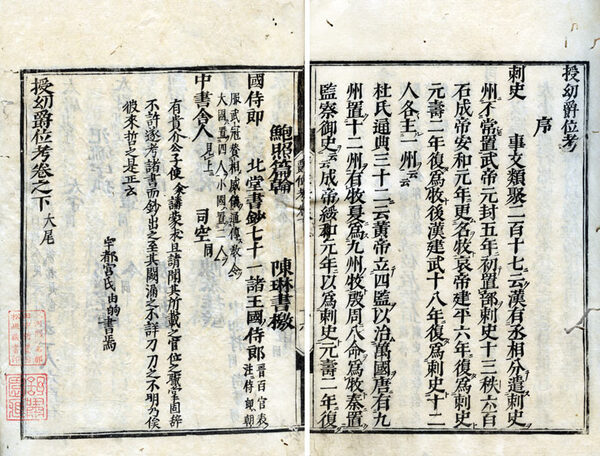 授幼爵位考
序
刺史　事文類聚二百十七云漢有丞相分遣刺史
州不常置武帝元封五年初置部刺史十三秩六百
石成帝安和元年更名牧哀帝建平六年復為刺史
元壽二年復為牧後漢建武十八年復為刺史十二
人各主一州云云
杜氏通典三十二云黄帝立四監以治萬國唐有九
州置十二州有牧夏為九州牧殷周八命為牧秦置
監察御史云云成帝綏和元年以為刺史元壽二年復
鮑照篇翰　陳琳書檄
國侍郎　北堂書鈔七十一諸王國侍郎晋百官表注侍郎朝
服武冠
大國置四人小國置二人
中書舍人見上　司空同
有貴介公子使余講蒙求且請聞其所載之官位之
不許逐考諸書而鈔出之至其闕漏之不詳刀刀之不明為俟
彼來哲之是正云
宇都宮氏由的書焉
授幼爵位考卷之下大尾